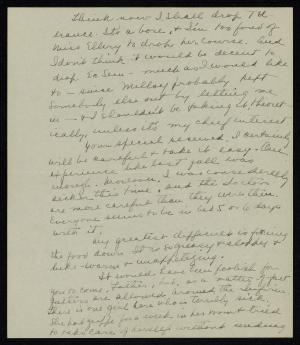 think now I shall drop Tol-
erance. It's a bore, & I'm too fond of
Miss Ellery to drop her course. And
I don't think it would be decent to
drop 20 Sem - much as I would like
to - since Millay probably kept
somebody else out by letting me
in - & I shouldn't be taking it, theoret-
ically, unless it's my chief interest
Your special received, I certainly
will be careful & take it easy. One
experience like last fall was
enough. Moreover, I was considerably
sicker this time, and the doctors
are more careful than they were then.
Everyone seems to be in bed 5 or 6 days
with it.
My greatest difficulty is forcing
the food down. It is so greasy & &
luke-warm & unappetizing.
It would have been foolish for
you to come, Father, but, as a matter of fact
visitors are allowed around the infirmary.
There is one girl here who is terribly sick.
She had grippe for a week in her room & tried
to take care of herself without sending